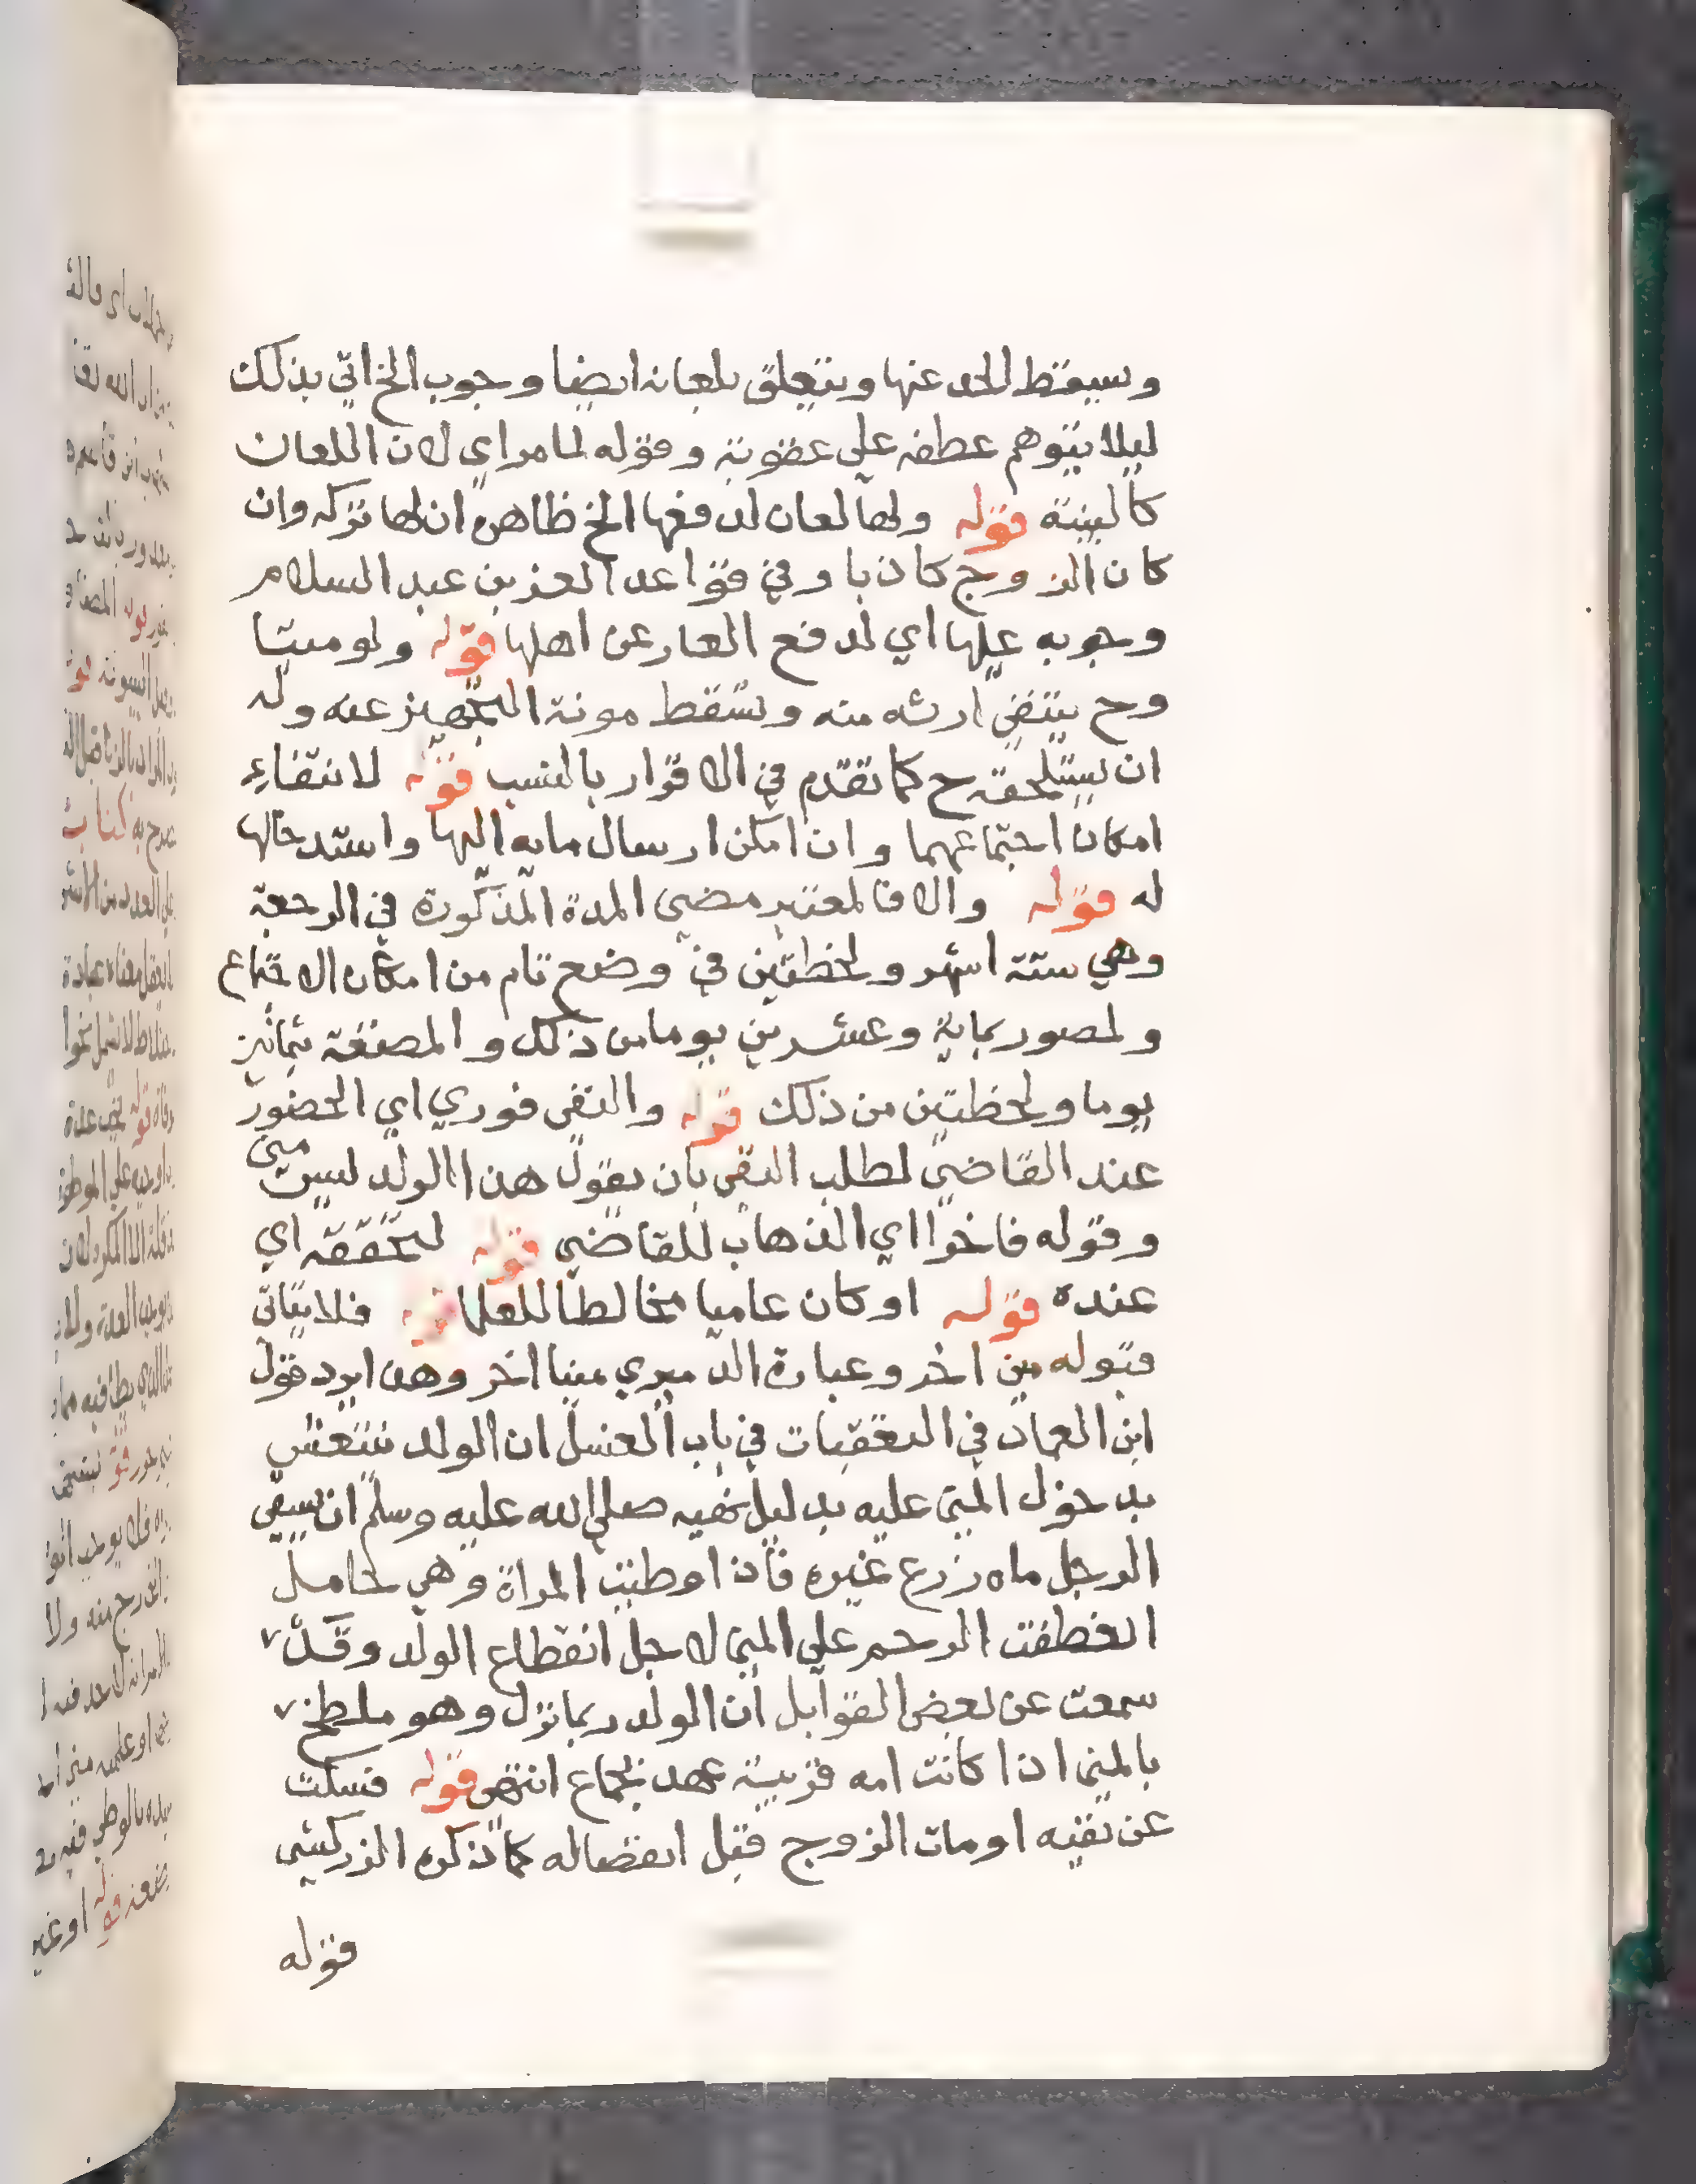 ويسقط الحد عنها ويتعلق بلعانه ايضا وجوب الخ اتي بذلك
ليلا يتوهم عطفه على عقوبة وقوله لما مر اي لان اللعان
كالبينة قوله ولها لعان لدفعها الخ ظاهره ان لها تركه وان
كان الزوج كاذبا وفي قواعد العز بن عبد السلام
وجوبه عليها اي لدفع العار عن اهلها قوله ولو ميتا
وح ينتفي ارثه منه وتسقط مونة التجهيز عنه وله
ان يستلحقه ح كما تقدم في الاقرار بالنسب قوله لانتفاء
امكان اجتماعهما وان امكن ارسال مايه اليها واستدخالها
له قوله والا فالمعتبر مضي المدة المذكورة في الرجعة
وهي ستة اشهر ولحظتين في وضع تام من امكان الاجتماع
ولمصور بماية وعشرين يوما من ذلك والمضغة بثمانين
يوما ولحظتين من ذلك قوله والنفي فوري اي الحضور
عند القاضي لطلب النفي بان يقول هذا الولد ليس مني
وقوله فاخر اي الذهاب للقاضي قوله لتحققه اي
عنده قوله او كان عاميا مخالطا للعلما قوله فلا يتاتى
قبوله من اخر وعبارة الدميري منيا اخر وهذا يرد قول
ابن العماد في التعقبات في باب الغسل ان الولد ينتعش
بدخول المني عليه بدليل نهيه صلى الله عليه وسلم ان يسقي
الرجل ماه زرع غيره فاذا وطيت المراة وهي حامل
انعطفت الرحم على المني لاجل انقطاع الولد وقد
سمعت عن بعض القوابل ان الولد ربما نزل وهو ملطخ
بالمني اذا كانت امه قريبة عهد بجماع انتهى قوله فسكت
عن نفيه او مات الزوج قبل انفصاله كما ذكره الزركشي
قوله